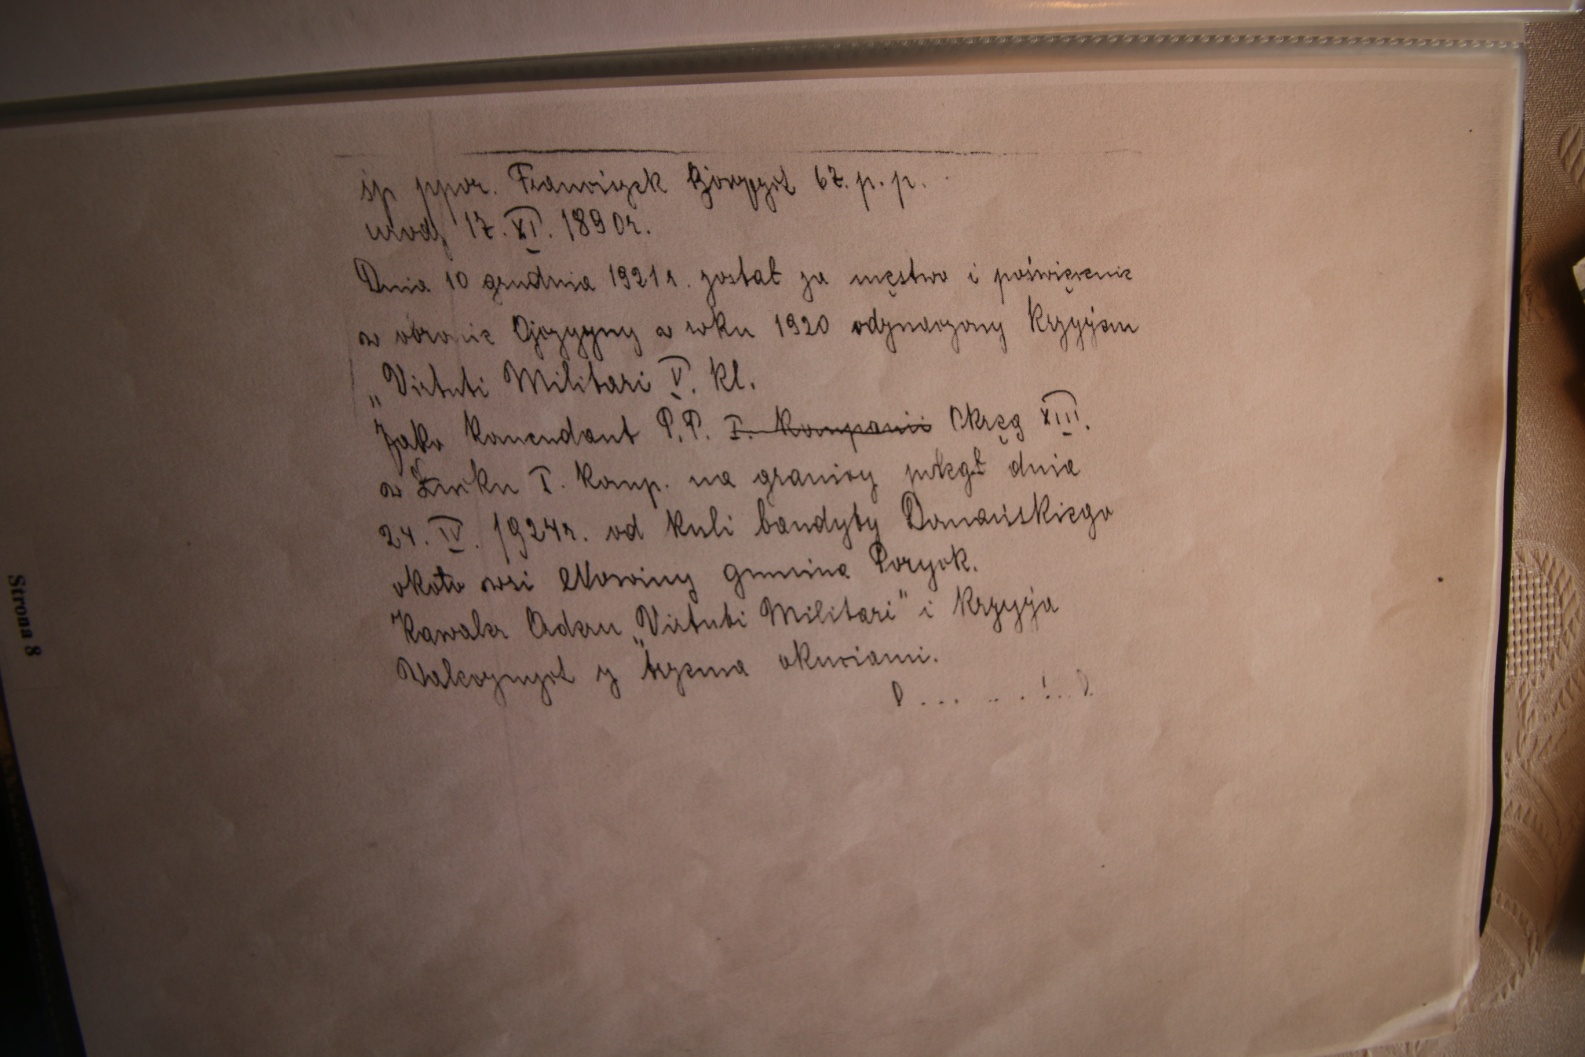 śp ppor. Franciszek 67. p. p.
urodz. 17. XI. 1890 r.
Dnia 10 grudnia 1921 r. został za męstwo i poświęcenie
w obronie Ojczyzny w roku 1920 odznaczony Krzyżem
„Virtuti Militari V. kl.
Jako Komendant P.P. I. Kompanii Okręg XIII.
w Łucku I. Komp. na granicy poległ dnia
24. IV. 1924 r. od kuli bandyty Domańskiego
około wsi Nowiny gmina Poryck.
Kawaler Orderu „Virtuti Militari" i Krzyża
Walecznych z trzema okuciami.
Strona 8